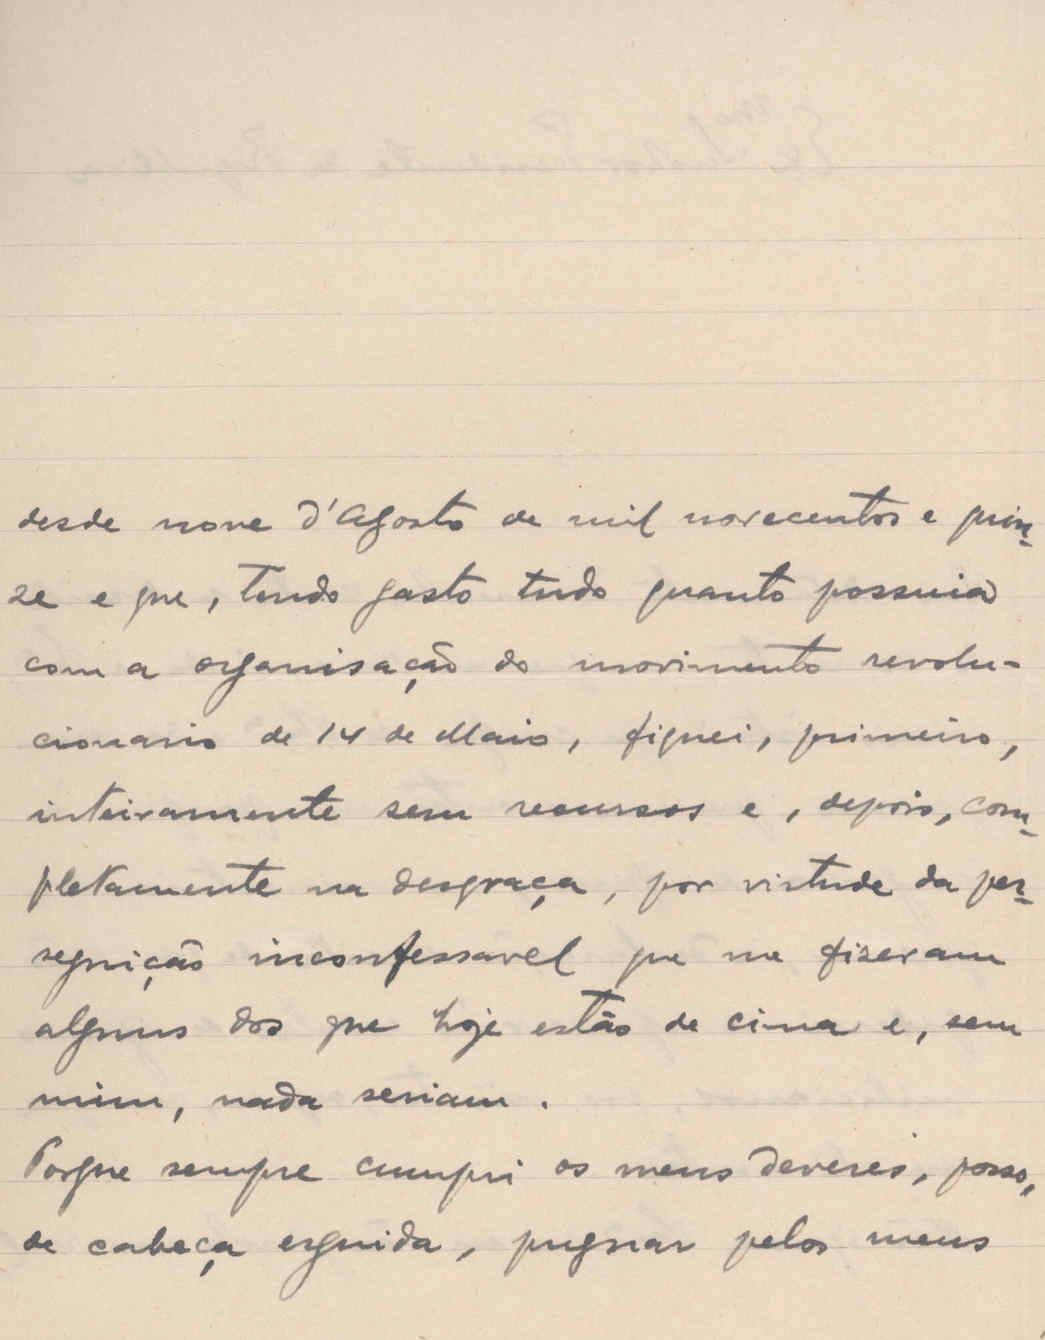 desde nove d'Agosto de mil novecentos e quin-
ze e que, tendo gasto tudo quanto possuia
com a organisação do movimento revolu-
cionario de 14 de Maio, fiquei, primeiro,
inteiramente sem recursos e, depois, com-
pletamente na desgraça, por virtude da per-
seguição inconfessavel que me fizeram
alguns dos que hoje estão de cima e, sem
mim, nada seriam.
Porque sempre cumpri os meus deveres, posso,
de cabeça erguida, pugnar pelos meus